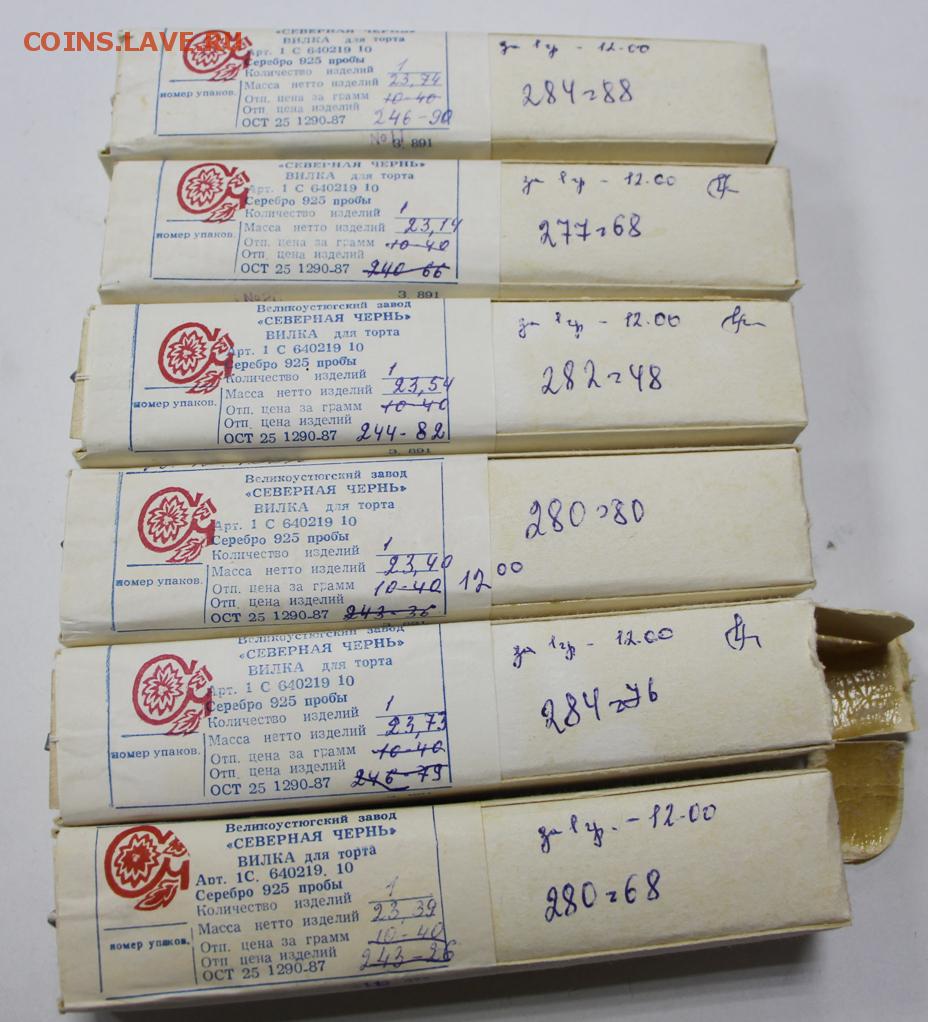 COINS.LAVE.RU
«СЕВЕРНАЯ ЧЕРНЬ»
ВИЛКА для торта
Арт. 1 С 640219 10
Серебро 925 пробы
Количество изделий 1
Масса нетто изделий 23,74
Отп. цена за грамм 10-40
Отп. цена изделий
ОСТ 25 1290-87 246-90
номер упаков.
3. 891
за 1 гр - 12.00
284=88
«СЕВЕРНАЯ ЧЕРНЬ»
ВИЛКА для торта
Арт. 1 С 640219 10
Серебро 925 пробы
Количество изделий 1
Масса нетто изделий 23,14
Отп. цена за грамм 10-40
Отп. цена изделий
ОСТ 25 1290-87 240-66
номер упаков.
3. 891
за 1 гр - 12.00
277=68
Великоустюгский завод
«СЕВЕРНАЯ ЧЕРНЬ»
ВИЛКА для торта
Арт. 1 С 640219 10
Серебро 925 пробы
Количество изделий 1
Масса нетто изделий 23,54
Отп. цена за грамм 10-40
Отп. цена изделий
ОСТ 25 1290-87 244-82
номер упаков.
3. 891
за 1 гр - 12.00
282=48
Великоустюгский завод
«СЕВЕРНАЯ ЧЕРНЬ»
ВИЛКА для торта
Арт. 1 С 640219 10
Серебро 925 пробы
Количество изделий 1
Масса нетто изделий 23,40
Отп. цена за грамм 10-40 12 00
Отп. цена изделий
ОСТ 25 1290-87 243-36
номер упаков.
280=80
Великоустюгский завод
«СЕВЕРНАЯ ЧЕРНЬ»
ВИЛКА для торта
Арт. 1 С 640219 10
Серебро 925 пробы
Количество изделий 1
Масса нетто изделий 23,73
Отп. цена за грамм 10-40
Отп. цена изделий
ОСТ 25 1290-87 246-79
номер упаков.
за 1 гр - 12.00
284=76
Великоустюгский завод
«СЕВЕРНАЯ ЧЕРНЬ»
ВИЛКА для торта
Арт. 1С. 640219. 10
Серебро 925 пробы
Количество изделий 1
Масса нетто изделий 23,39
Отп. цена за грамм 10-40
Отп цена изделий
ОСТ 25 1290-87 243-26
номер упаков.
за 1 гр. - 12.00
280=68